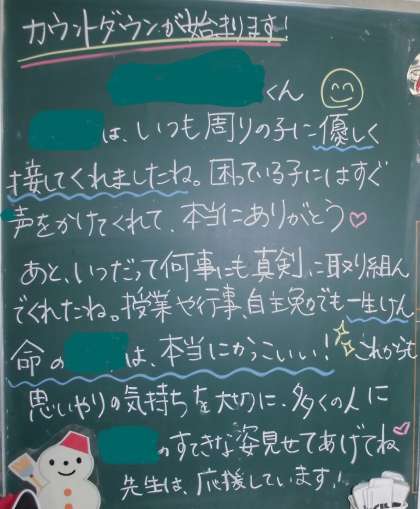 カウントダウンが始まります!
くん
は、いつも周りの子に優しく
接してくれましたね。困っている子にはすぐ
声をかけてくれて、本当にありがとう♡
あと、いつだって何事にも真剣に取り組ん
でくれたね。授業や行事、自主勉でも一生けん
命の は、本当にかっこいい!これからも
思いやりの気持ちを大切に、多くの人に
のすてきな姿見せてあげてね
先生は、応援しています!